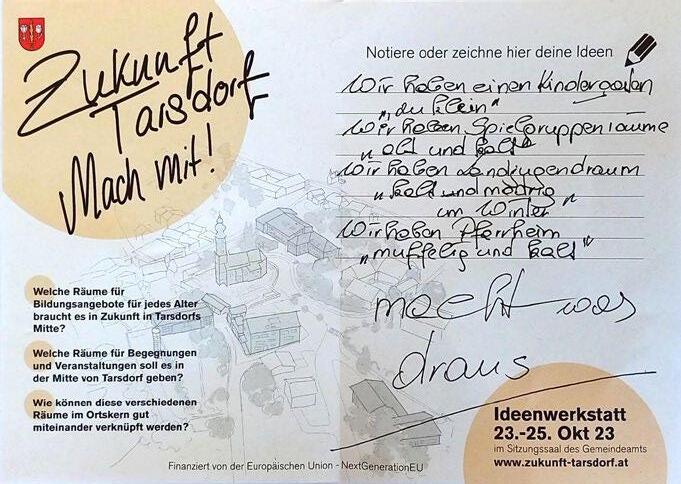 Zukunft
Tarsdorf
Mach mit!
Welche Räume für
Bildungsangebote für jedes Alter
braucht es in Zukunft in Tarsdorfs
Mitte?
Welche Räume für Begegnungen
und Veranstaltungen soll es in
der Mitte von Tarsdorf geben?
Wie können diese verschiedenen
Räume im Ortskern gut
miteinander verknüpft werden?
Notiere oder zeichne hier deine Ideen
Wir haben einen Kindergarten
"zu klein"
Wir haben Spielgruppenräume
"alt und kalt"
Wir haben Landjugendraum
"kalt und modrig
im Winter"
Wir haben Pfarrheim
"muffelig und kalt"
macht was
draus
Ideenwerkstatt
23.-25. Okt 23
im Sitzungssaal des Gemeindeamts
www.zukunft-tarsdorf.at
Finanziert von der Europäischen Union - NextGenerationEU